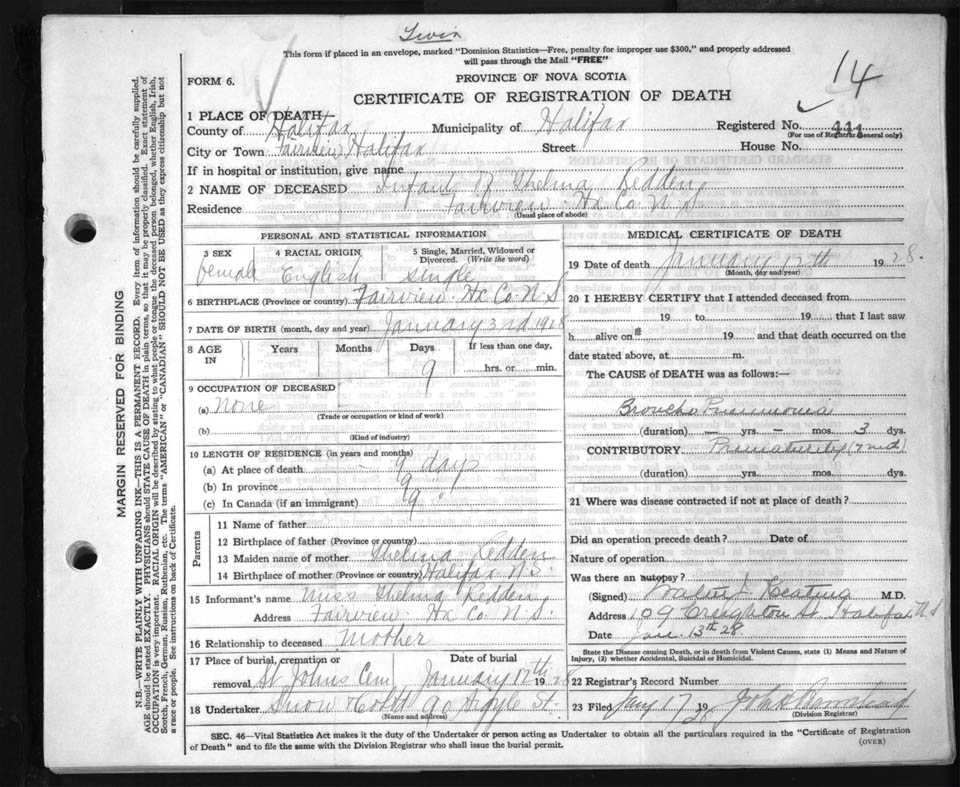 Twin
This form if placed in an envelope, marked "Dominion Statistics—Free, penalty for improper use $300," and properly addressed
will pass through the Mail "FREE"
14
FORM 6.
PROVINCE OF NOVA SCOTIA
CERTIFICATE OF REGISTRATION OF DEATH
1 PLACE OF DEATH
County of Halifax Municipality of Halifax Registered No.
(For use of Registrar General only)
City or Town Fairview Halifax Street House No.
If in hospital or institution, give name
2 NAME OF DECEASED Infant of Thelma Redden
Residence Fairview Hx Co N.S.
(Usual place of abode)
PERSONAL AND STATISTICAL INFORMATION
3 SEX 4 RACIAL ORIGIN 5 Single, Married, Widowed or Divorced. (Write the word)
female English single
6 BIRTHPLACE (Province or country) Fairview Hx Co N.S
7 DATE OF BIRTH (month, day and year) January 3rd 1928
8 AGE IN Years Months Days If less than one day,
9 hrs. or min.
9 OCCUPATION OF DECEASED
(a) None
(Trade or occupation or kind of work)
(b)
(Kind of industry)
10 LENGTH OF RESIDENCE (in years and months)
(a) At place of death 9 days
(b) In province 9 "
(c) In Canada (if an immigrant) 9 "
Parents
11 Name of father
12 Birthplace of father (Province or country)
13 Maiden name of mother Thelma Redden
14 Birthplace of mother (Province or country) Halifax N.S.
15 Informant's name Miss Thelma Redden
Address Fairview Hx Co N.S.
16 Relationship to deceased mother
17 Place of burial, cremation or removal Date of burial
St Johns Cem January 12th 1928
18 Undertaker Snow & Co Ltd 90 Argyle St.
(Name and address)
MEDICAL CERTIFICATE OF DEATH
19 Date of death January 12th 1928.
(Month, day and year)
20 I HEREBY CERTIFY that I attended deceased from
19 to 19 that I last saw
h alive on 19 and that death occurred on the
date stated above, at m.
The CAUSE of DEATH was as follows:—
Broncho Pneumonia
(duration) — yrs. — mos. 3 dys.
CONTRIBUTORY Prematurity
(duration) yrs. mos. dys.
21 Where was disease contracted if not at place of death?
Did an operation precede death? Date of
Nature of operation
Was there an autopsy?
(Signed) Keating M.D.
Address 109 Creighton St. Halifax N.S
Date Jan. 13th 28.
State the Disease causing Death, or in death from Violent Causes, state (1) Means and Nature of
Injury, (2) whether Accidental, Suicidal or Homicidal.
22 Registrar's Record Number
23 Filed Jany 17 1928 John
(Division Registrar)
SEC. 46—Vital Statistics Act makes it the duty of the Undertaker or person acting as Undertaker to obtain all the particulars required in the "Certificate of Registration
of Death" and to file the same with the Division Registrar who shall issue the burial permit.
(OVER)
MARGIN RESERVED FOR BINDING
N.B.—WRITE PLAINLY WITH UNFADING INK—THIS IS A PERMANENT RECORD. Every item of information should be carefully supplied.
AGE should be stated EXACTLY. PHYSICIANS should STATE CAUSE OF DEATH in plain terms, so that it may be properly classified. Exact statement of
OCCUPATION is very important. RACIAL ORIGIN will be described by stating to what people or tongue the deceased person belonged, whether English, Irish,
Scotch, French, German, Russian, Ruthenian, etc. The terms "AMERICAN" or "CANADIAN" SHOULD NOT BE USED as they express citizenship but not
a race or people. See instructions on back of Certificate.